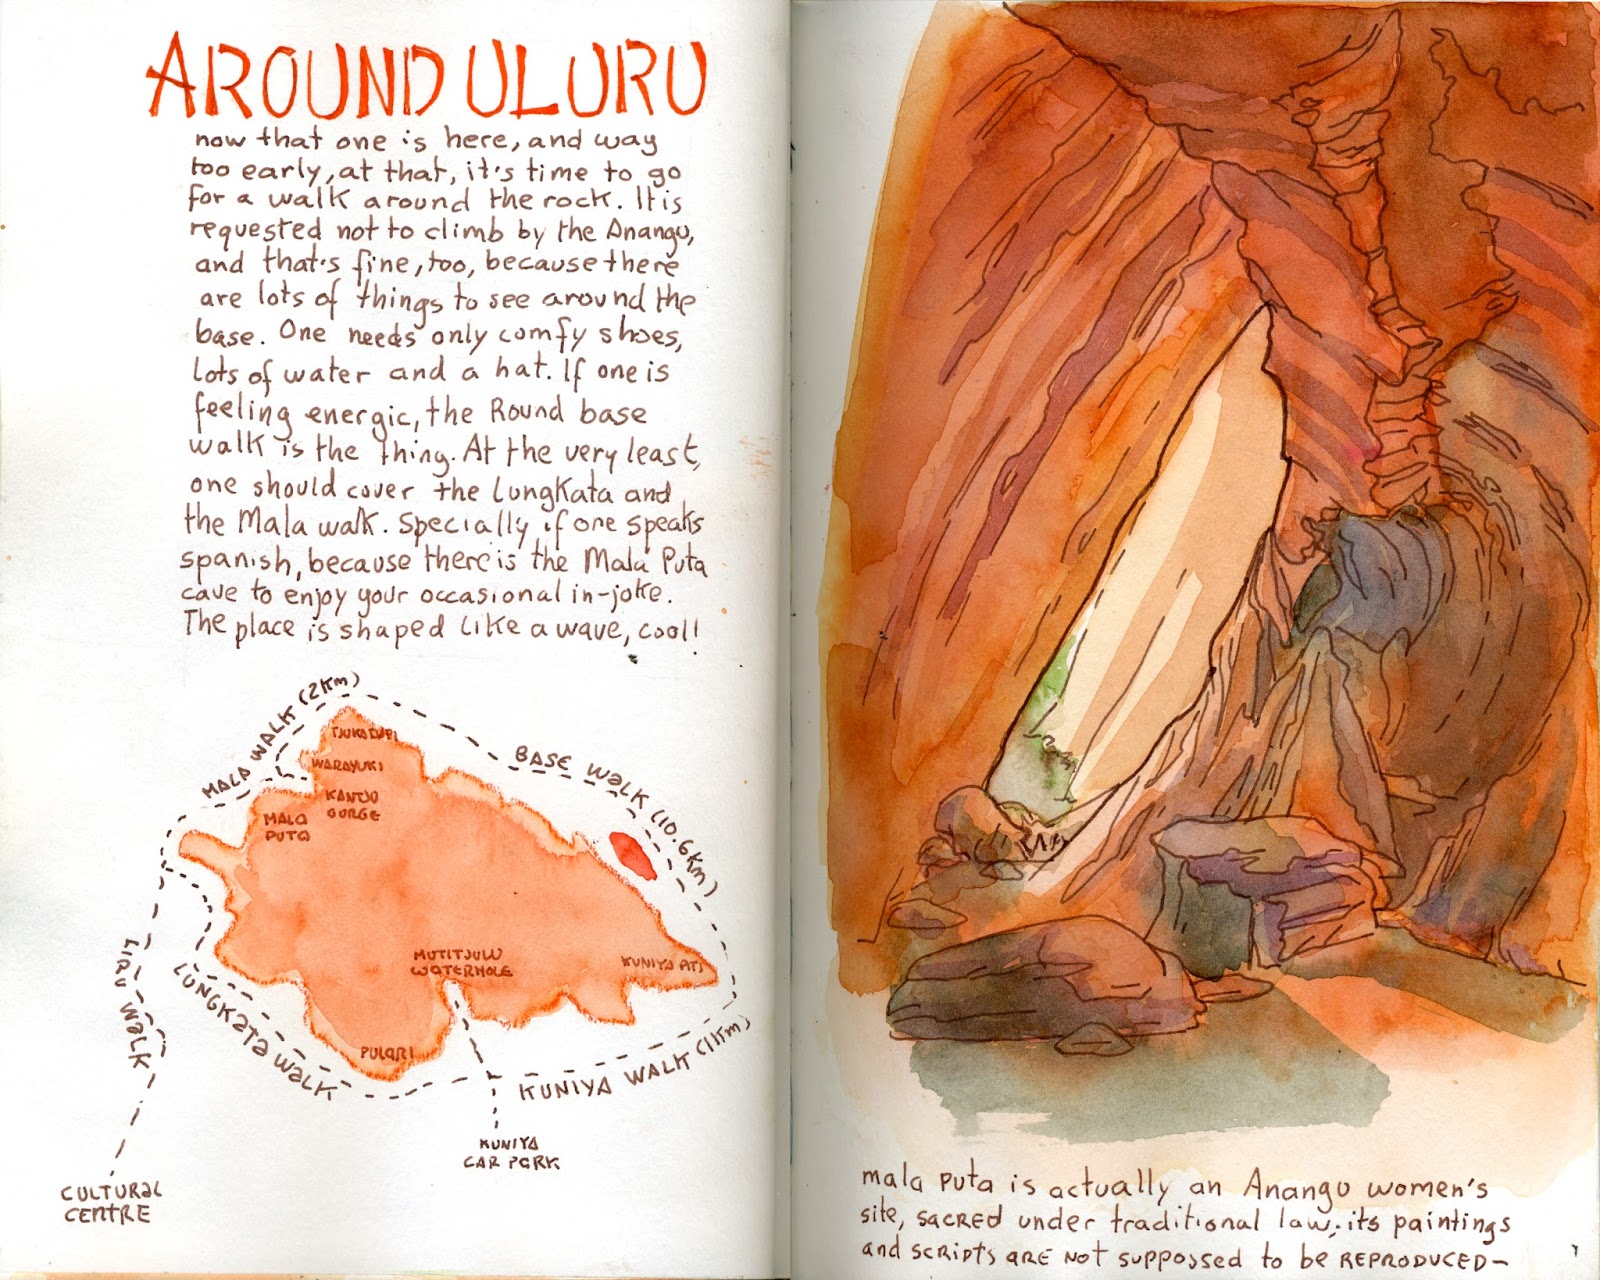 AROUND ULURU
now that one is here, and way
too early, at that, it's time to go
for a walk around the rock. It is
requested not to climb by the Anangu,
and that's fine, too, because there
are lots of things to see around the
base. One needs only comfy shoes,
lots of water and a hat. If one is
feeling energic, the Round base
walk is the thing. At the very least,
one should cover the Lungkata and
the Mala walk. Specially if one speaks
spanish, because there is the Mala Puta
cave to enjoy your occasional in-joke.
The place is shaped like a wave, cool!
MALA WALK (2Km)
BASE WALK (10.6Km)
WARAYUKI
KANTJO
GORGE
MALA
PUTA
MUTITJULU
WATERHOLE
KUNIYA ATI
PULARI
LIRU WALK
LUNGKATA WALK
KUNIYA WALK (1Km)
KUNIYA
CAR PARK
CULTURAL
CENTRE
mala puta is actually an Anangu women's
site, sacred under traditional law; its paintings
and scripts are not suppossed to be reproduced—